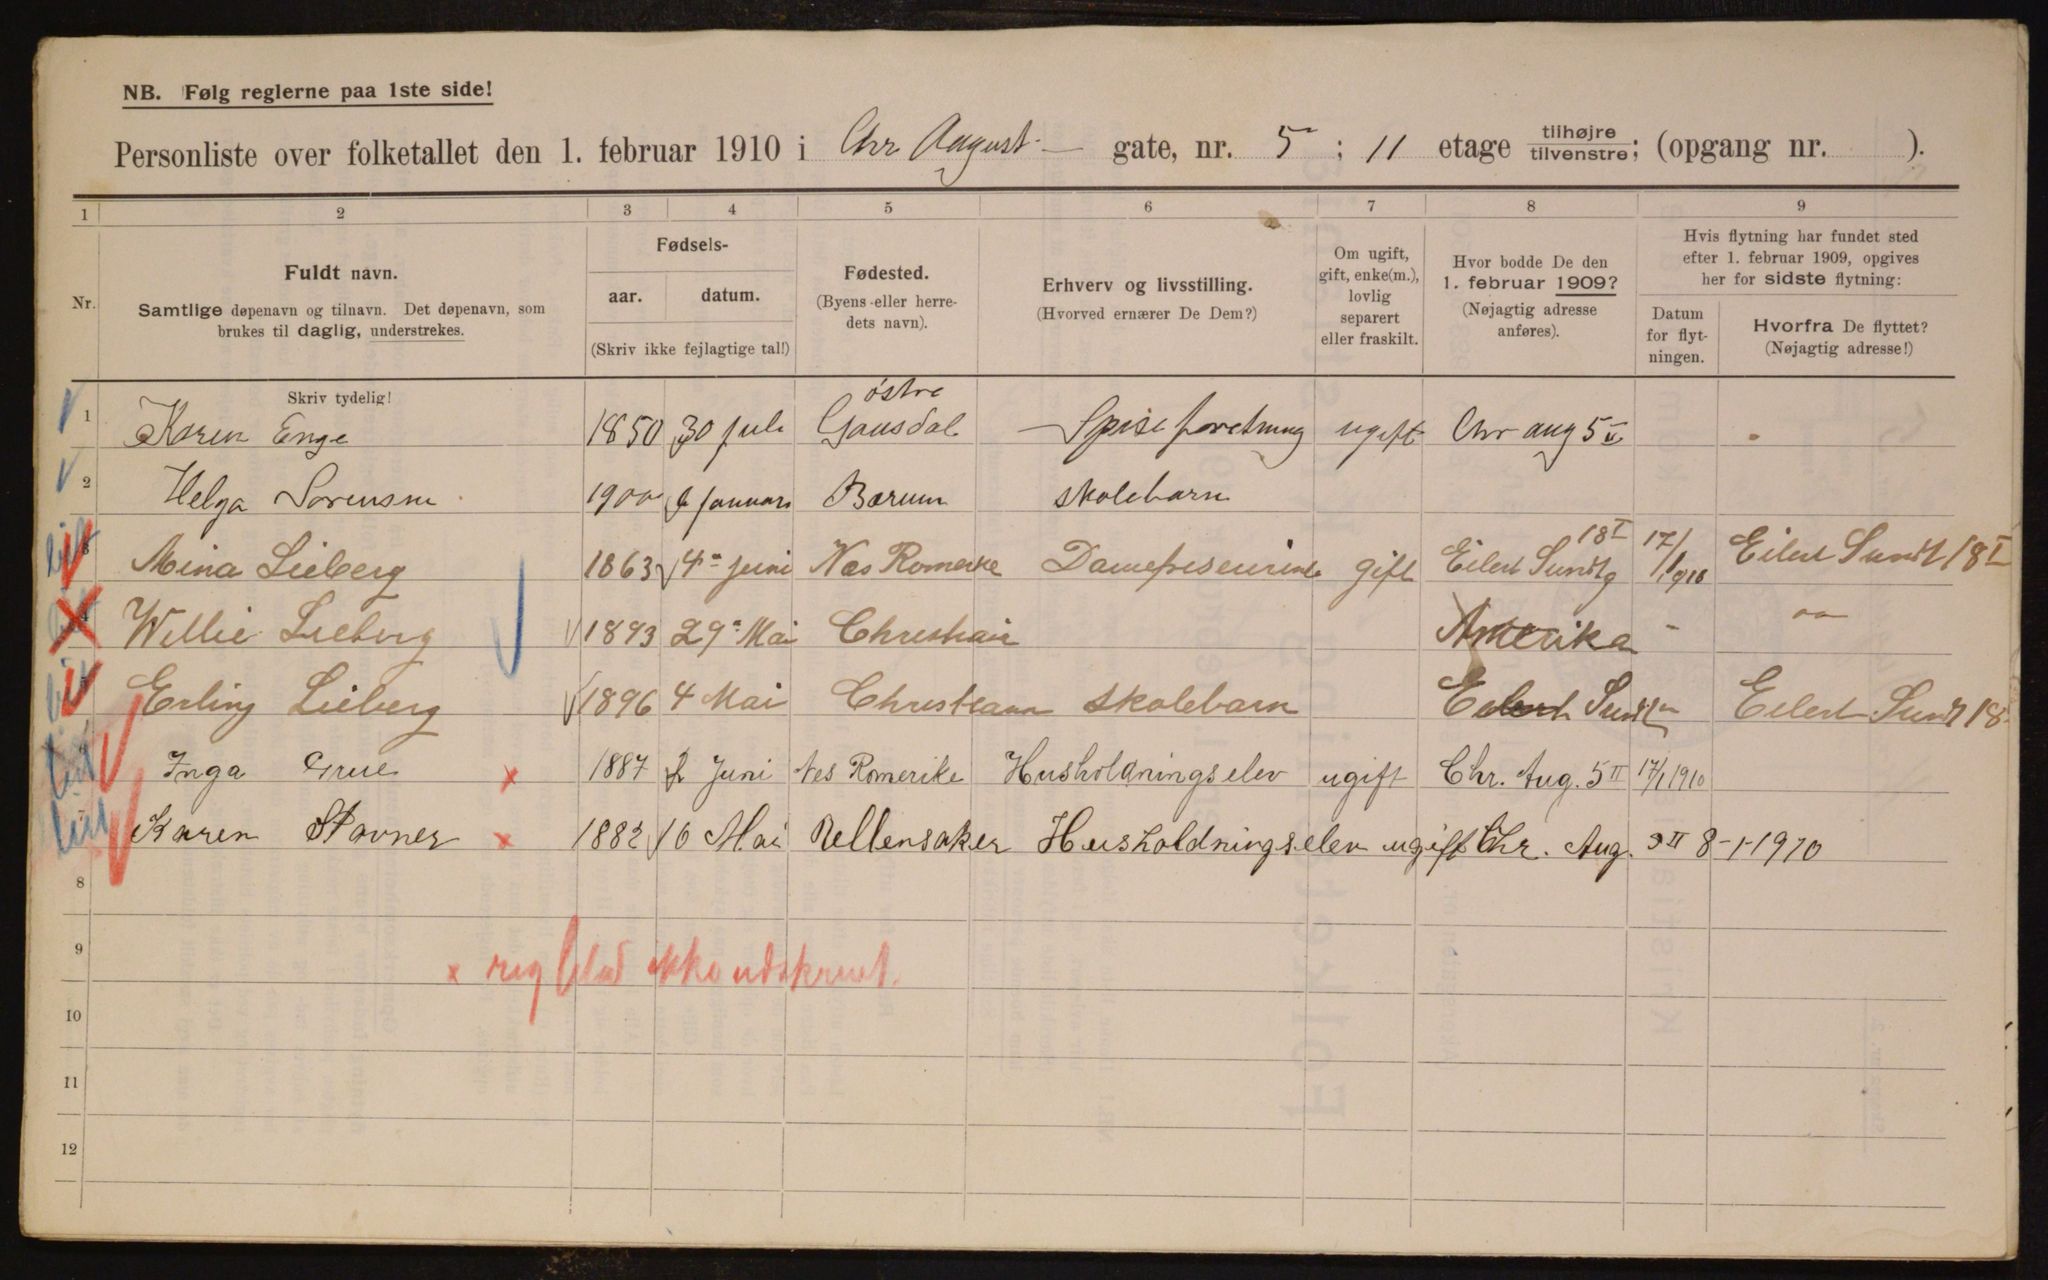 NB. Følg reglerne paa 1ste side!
Personliste over folketallet den 1. februar 1910 i Chr August gate, nr. 5 ; 11 etage tilhøjre tilvenstre; (opgang nr. ).
1 2 3 4 5 6 7 8 9
Nr.
Fuldt navn.
Samtlige døpenavn og tilnavn. Det døpenavn, som
brukes til daglig, understrekes.
Fødsels-
aar. datum.
(Skriv ikke fejlagtige tal!)
Fødested.
(Byens eller herre-
dets navn).
Erhverv og livsstilling.
(Hvorved ernærer De Dem?)
Om ugift,
gift, enke(m.),
lovlig
separert
eller fraskilt.
Hvor bodde De den
1. februar 1909?
(Nøjagtig adresse
anføres).
Hvis flytning har fundet sted
efter 1. februar 1909, opgives
her for sidste flytning:
Datum
for flyt-
ningen.
Hvorfra De flyttet?
(Nøjagtig adresse!)
Skriv tydelig!
1 Karen Enge 1850 30 juli østre Gausdal Spiseforetning ugift Chr aug 5 II
2 Helga Sorensen 1900 6 januari Bærum skolebarn
3 Mina Lieberg 1863 4 juni Nes Romerike gift Eilert Sundtg 18 I 17/1 1910 Eilert Sundt 18 I
4 Willie Lieberg 1893 29 Mai Christiania Amerika - "
5 Erling Lieberg 1896 4 Mai Christiania skolebarn Eilert Sundt Eilert Sundt 18
6 Inga Grue x 1887 2 Juni Nes Romerike Husholdningselev ugift Chr. Aug. 5 II 17/1 1910
7 Karen Stavner x 1882 16 Mai Ullensaker Husholdningselev ugift Chr. Aug. 5 II 8-1-1910
8
9
x reg blad ikke udskrevet.
10
11
12